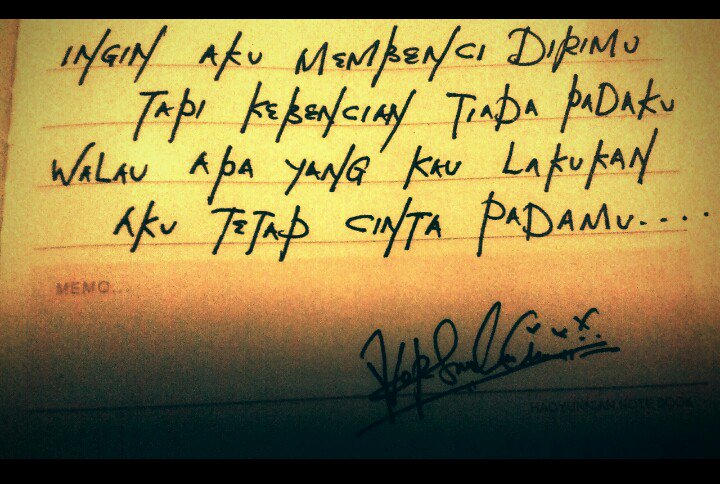 INGIN AKU MEMBENCI DIRIMU
TAPI KEBENCIAN TIADA PADAKU
WALAU APA YANG KAU LAKUKAN
AKU TETAP CINTA PADAMU....
MEMO...
NOTE BOOK